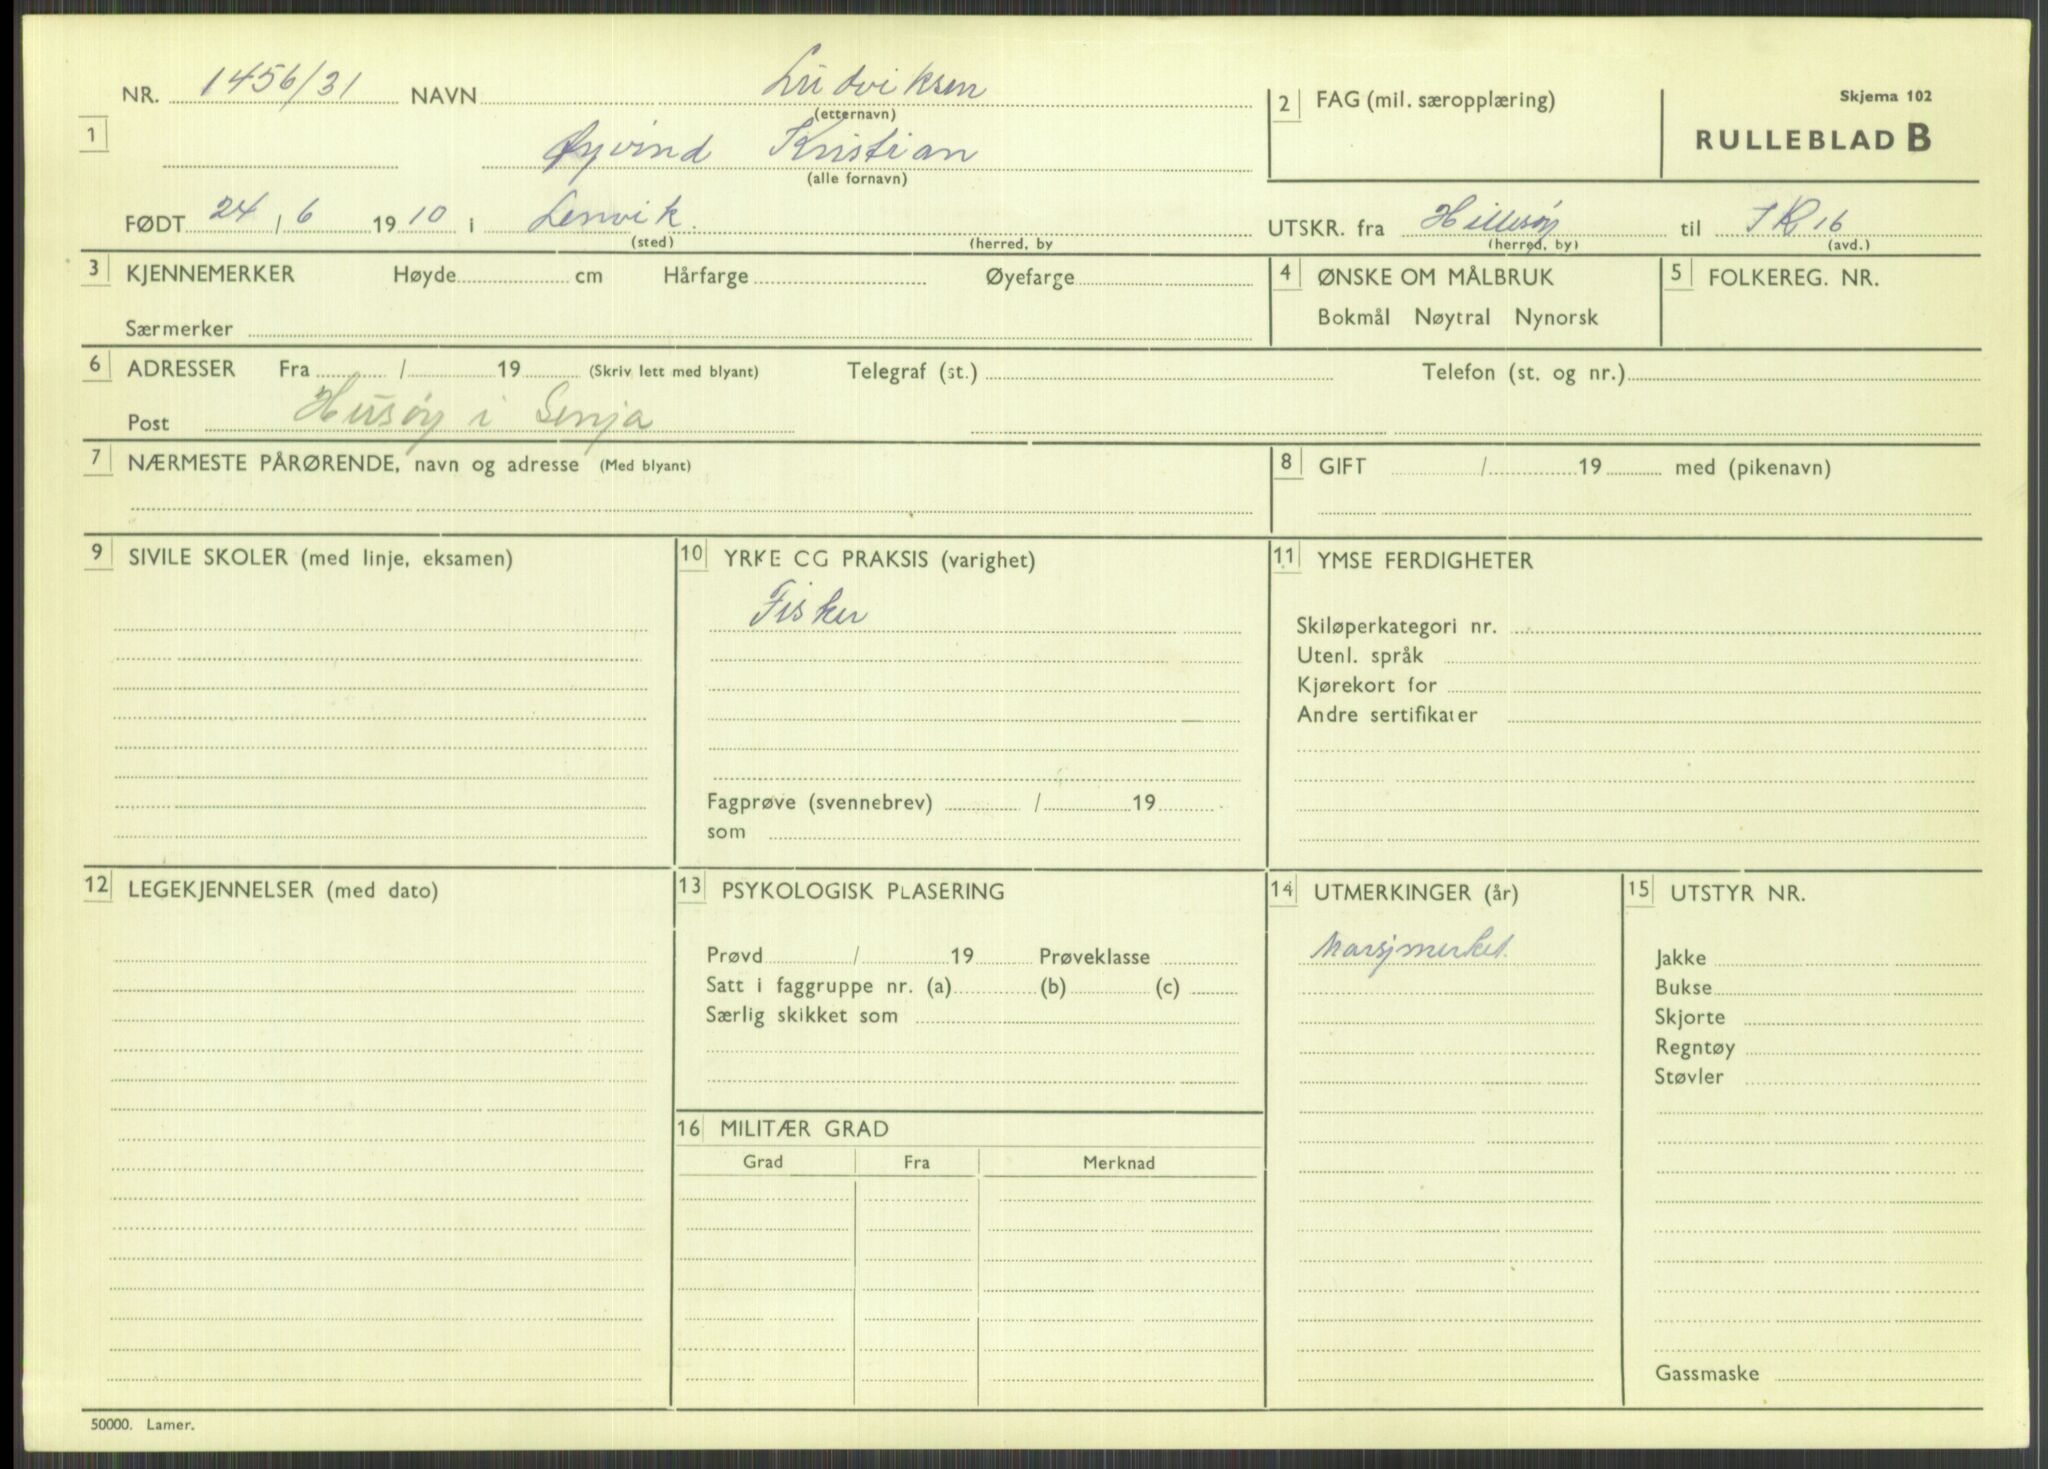 NR. 1456/31 NAVN Ludviksen
(etternavn)
2 FAG (mil. særopplæring)
Skjema 102
RULLEBLAD B
1
Øyvind Kristian
(alle fornavn)
FØDT 24 / 6 19 10 i Lenvik.
(sted) (herred, by
UTSKR. fra Hillesøy til IR 16
(herred, by) (avd.)
3 KJENNEMERKER Høyde cm Hårfarge Øyefarge
Særmerker
4 ØNSKE OM MÅLBRUK
Bokmål Nøytral Nynorsk
5 FOLKEREG. NR.
6 ADRESSER Fra / 19 (Skriv lett med blyant) Telegraf (st.) Telefon (st. og nr.)
Post Husøy i Senja
7 NÆRMESTE PÅRØRENDE, navn og adresse (Med blyant)
8 GIFT / 19 med (pikenavn)
9 SIVILE SKOLER (med linje, eksamen)
10 YRKE OG PRAKSIS (varighet)
Fisker
Fagprøve (svennebrev) / 19
som
11 YMSE FERDIGHETER
Skiløperkategori nr.
Utenl. språk
Kjørekort for
Andre sertifikater
12 LEGEKJENNELSER (med dato)
13 PSYKOLOGISK PLASERING
Prøvd / 19 Prøveklasse
Satt i faggruppe nr. (a) (b) (c)
Særlig skikket som
14 UTMERKINGER (år)
Marsjmerket.
15 UTSTYR NR.
Jakke
Bukse
Skjorte
Regntøy
Støvler
Gassmaske
16 MILITÆR GRAD
Grad Fra Merknad
50000. Lamer.